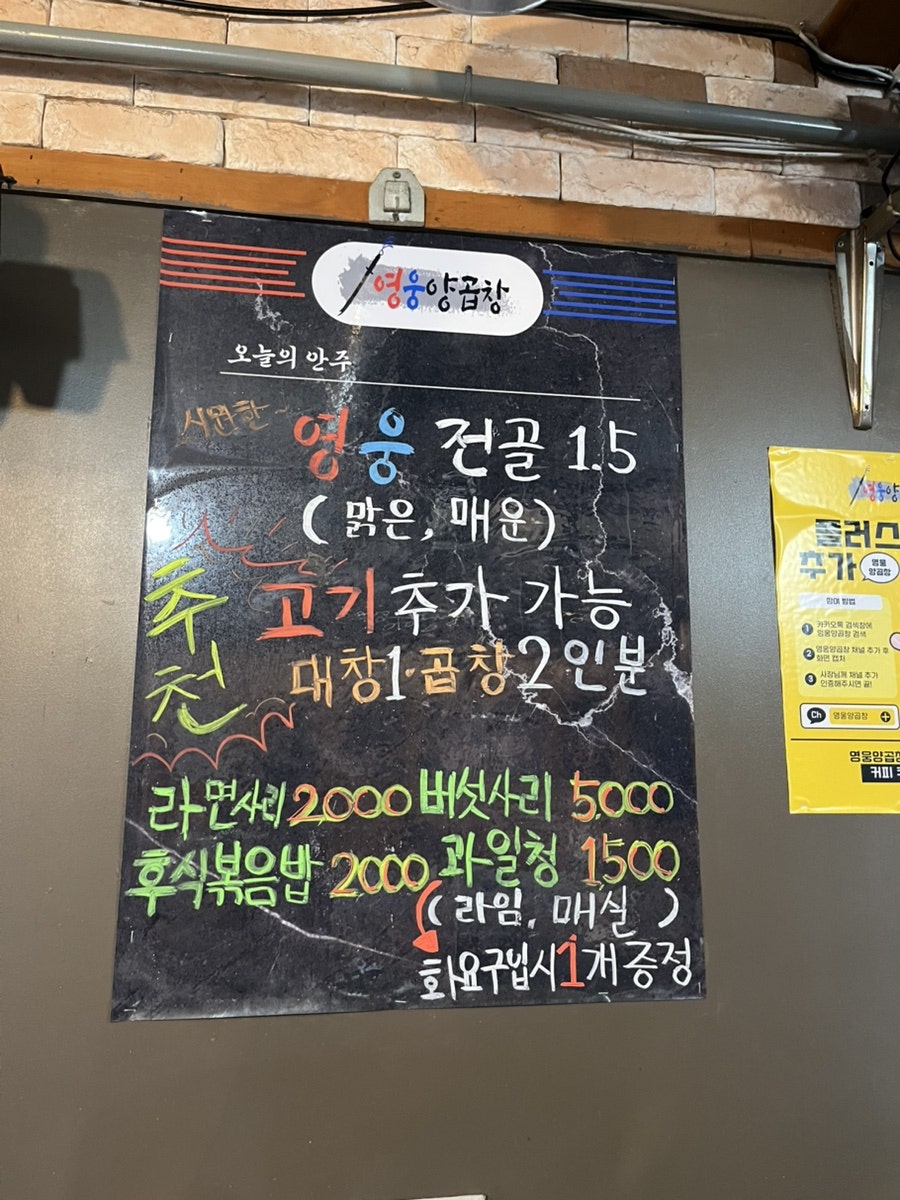 영웅양곱창
오늘의 안주
시원한
영웅 전골 1.5
(맑은, 매운)
추천
고기 추가 가능
대창1·곱창2인분
라면사리 2000 버섯사리 5000
후식볶음밥 2000 과일청 1500
(라임, 매실)
화요구입시 1개 증정
영웅양
플러스
추가
영웅
양곱창
참여 방법
1 카카오톡 검색창에
영웅양곱창 검색
2 영웅양곱창 채널 추가 후
화면 캡처
3 사장님께 채널 추가
인증해주시면 끝!
Ch 영웅양곱창 +
영웅양곱창
커피